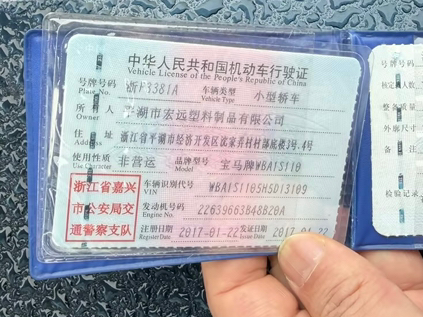 中华人民共和国机动车行驶证
Vehicle License of the People's Republic of China
号牌号码 浙F3381A 车辆类型 小型轿车
Plate No. Vehicle Type
所有人 平湖市宏远塑料制品有限公司
Owner
住址 浙江省平湖市经济开发区沈家弄村村部底楼3号.4号
Address
使用性质 非营运 品牌型号 宝马牌WBA1S110
Use Character Model
浙江省嘉兴
市公安局交
通警察支队
车辆识别代号 WBA1S1105H5D13109
VIN
发动机号码 22639663B48B20A
Engine No.
注册日期 2017-01-22 发证日期 2017-01-22
Register Date Issue Date
号牌号码
核定载人数
整备质量
外廓尺寸
备注
检验记录